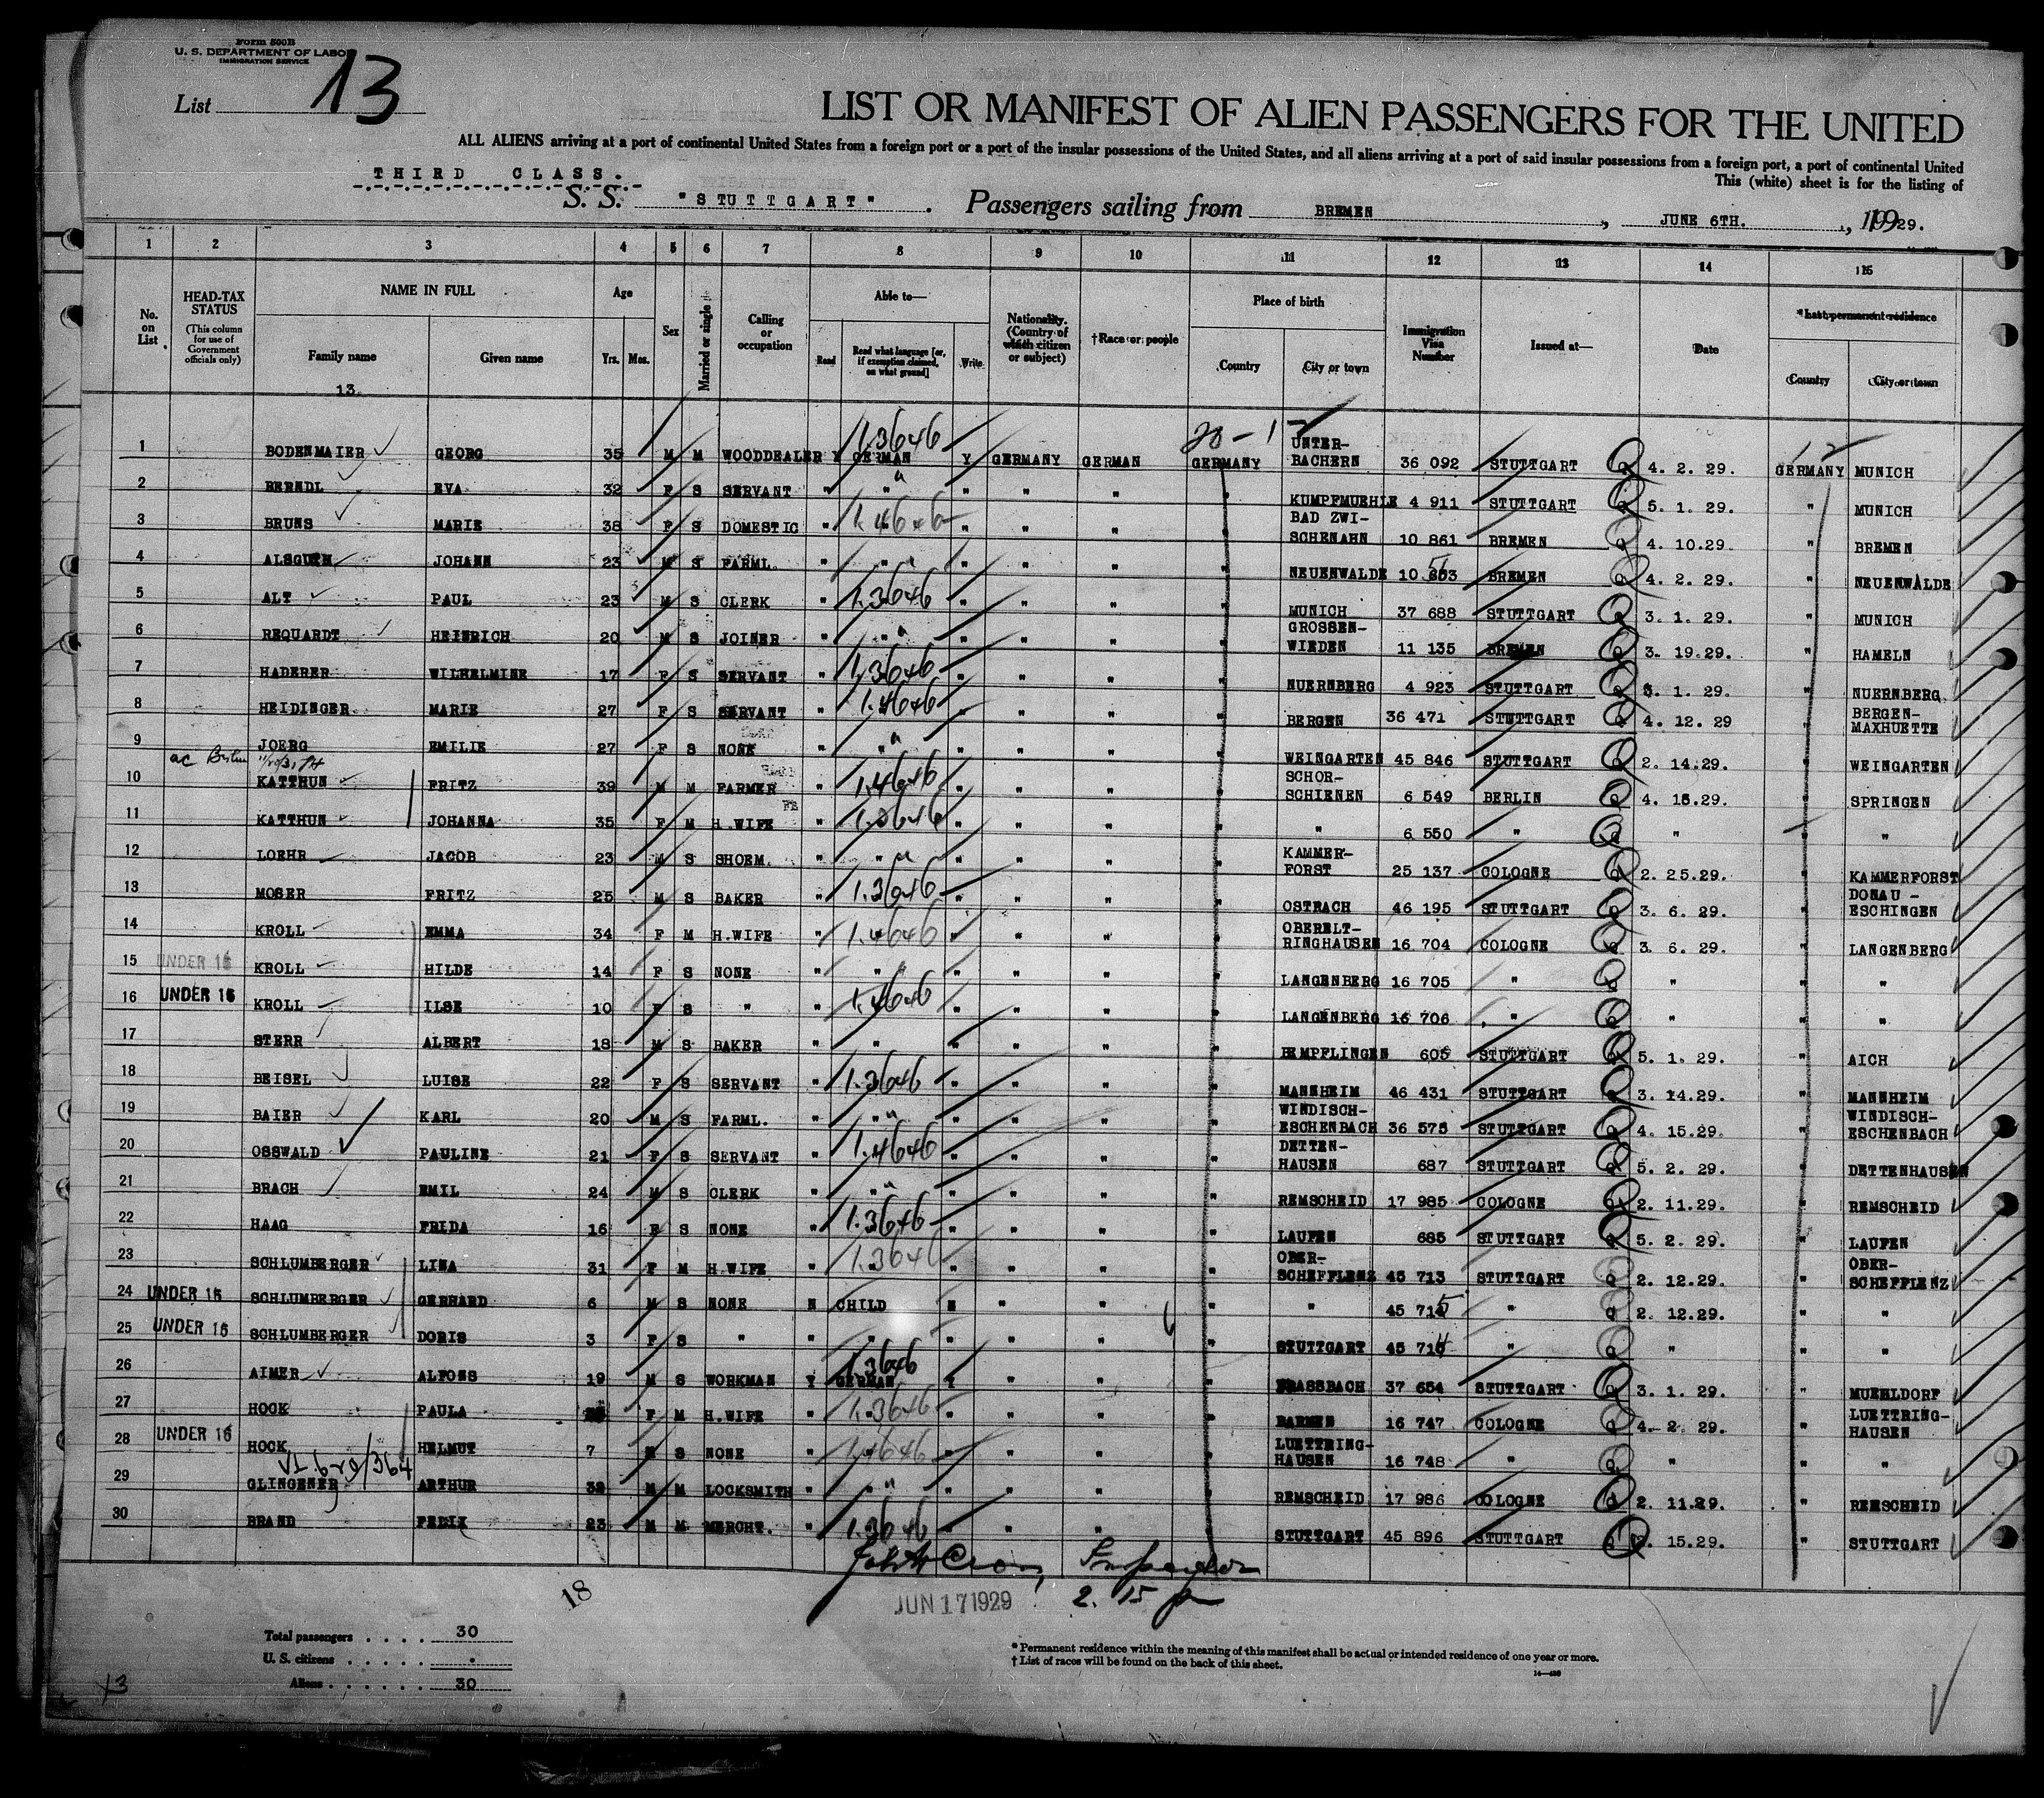 Form 500B
U. S. DEPARTMENT OF LABOR
IMMIGRATION SERVICE
List 13
LIST OR MANIFEST OF ALIEN PASSENGERS FOR THE UNITED
ALL ALIENS arriving at a port of continental United States from a foreign port or a port of the insular possessions of the United States, and all aliens arriving at a port of said insular possessions from a foreign port, a port of continental United
This (white) sheet is for the listing of
THIRD CLASS.
S. S. "STUTTGART". Passengers sailing from BREMEN, JUNE 6TH., 1929.
1 2 3 4 5 6 7 8 9 10 11 12 13 14 15
No. on List
HEAD-TAX STATUS (This column for use of Government officials only)
NAME IN FULL
Family name
Given name
13.
Age
Yrs. Mos.
Sex
Married or single
Calling or occupation
Able to—
Read
Read what language [or, if exemption claimed, on what ground]
Write
Nationality. (Country of which citizen or subject)
†Race or people
Place of birth
Country
City or town
Immigration Visa Number
Issued at—
Date
*Last permanent residence
Country
City or town
1 BODENMAIER GEORG 35 M M WOODDEALER Y GERMAN Y GERMANY GERMAN GERMANY UNTER-BACHERN 36 092 STUTTGART 4. 2. 29. GERMANY MUNICH
2 BERNDL EVA 32 F S SERVANT " " " " " " KUMPFMUEHLE 4 911 STUTTGART 5. 1. 29. " MUNICH
3 BRUNS MARIE 38 F S DOMESTIC " 1.4646 " " " " BAD ZWI-SCHENAHN 10 861 BREMEN 4. 10.29. " BREMEN
4 JOHANN 23 M S FARML. " " " " " " NEUENWALDE 10 BREMEN 4. 2. 29. " NEUENWALDE
5 ALT PAUL 23 M S CLERK " 1.3646 " " " " MUNICH 37 688 STUTTGART 3. 1. 29. " MUNICH
6 REQUARDT HEINRICH 20 M S JOINER " " " " " " GROSSEN-WIEDEN 11 135 BREMEN 3. 19.29. " HAMELN
7 HADERER WILHELMINE 17 F S SERVANT " 1.3646 " " " " NUERNBERG 4 923 STUTTGART 5. 1. 29. " NUERNBERG
8 HEIDINGER MARIE 27 F S SERVANT " 1.4646 " " " " BERGEN 36 471 STUTTGART 4. 12. 29 " BERGEN-MAXHUETTE
9 JOERG EMILIE 27 F S NONE " " " " " " WEINGARTEN 45 846 STUTTGART 2. 14.29. " WEINGARTEN
10 KATTHUN FRITZ 39 M M FARMER " 1.4646 " " " " SCHOR-SCHIENEN 6 549 BERLIN 4. 15.29. " SPRINGEN
11 KATTHUN JOHANNA 35 F M H.WIFE " 1.3646 " " " " " 6 550 " " "
12 LOEHR JACOB 23 M S SHOEM. " " " " " " KAMMER-FORST 25 137 COLOGNE 2. 25.29. " KAMMERFORST
13 MOSER FRITZ 25 M S BAKER " 1.3646 " " " " OSTRACH 46 195 STUTTGART 3. 6. 29. " DONAU-ESCHINGEN
14 KROLL EMMA 34 F M H.WIFE " 1.4646 " " " " OBERELT-RINGHAUSEN 16 704 COLOGNE 3. 6. 29. " LANGENBERG
15 UNDER 16 KROLL HILDE 14 F S NONE " " " " " " LANGENBERG 16 705 " " " "
16 UNDER 16 KROLL ILSE 10 F S " " 1.4646 " " " " LANGENBERG 16 706 " " " "
17 STERR ALBERT 18 M S BAKER " " " " " " BEMPFLINGEN 605 STUTTGART 5. 1. 29. " AICH
18 BEISEL LUISE 22 F S SERVANT " 1.3646 " " " " MANNHEIM 46 431 STUTTGART 3. 14.29. " MANNHEIM
19 BAIER KARL 20 M S FARML. " " " " " " WINDISCH-ESCHENBACH 36 575 STUTTGART 4. 15.29. " WINDISCH-ESCHENBACH
20 OSSWALD PAULINE 21 F S SERVANT " 1.4646 " " " " DETTEN-HAUSEN 687 STUTTGART 5. 2. 29. " DETTENHAUSEN
21 BRACH EMIL 24 M S CLERK " " " " " " REMSCHEID 17 985 COLOGNE 2. 11.29. " REMSCHEID
22 HAAG FRIDA 16 F S NONE " 1.3646 " " " " LAUFEN 685 STUTTGART 5. 2. 29. " LAUFEN
23 SCHLUMBERGER LINA 31 F M H.WIFE " 1.3646 " " " " OBER-SCHEFFLENZ 45 713 STUTTGART 2. 12.29. " OBER-SCHEFFLENZ
24 UNDER 16 SCHLUMBERGER GERHARD 6 M S NONE N CHILD N " " " " 45 715 " 2. 12.29. " "
25 UNDER 16 SCHLUMBERGER DORIS 3 F S " " " " " " " STUTTGART 45 714 " " " "
26 AIMER ALFONS 19 M S WORKMAN Y GERMAN Y " " " 37 654 STUTTGART 3. 1. 29. " MUEHLDORF
27 HOCK PAULA F M H.WIFE " 1.3646 " " " " BARMEN 16 747 COLOGNE 4. 2. 29. " LUETTRING-HAUSEN
28 UNDER 16 HOCK HELMUT 7 M S NONE " 1.4646 " " " " LUETTRING-HAUSEN 16 748 " " " "
29 GLINGENER ARTHUR 32 M M LOCKSMITH " " " " " " REMSCHEID 17 986 COLOGNE 2. 11.29. " REMSCHEID
30 BRAND FELIX 23 M M MERCHT. " 1.3646 " " " " STUTTGART 45 896 STUTTGART 2. 15.29. " STUTTGART
18
JUN 17 1929
2. 15 p
Total passengers . . . . 30
U. S. citizens . . . . .
Aliens . . . . . . 30
* Permanent residence within the meaning of this manifest shall be actual or intended residence of one year or more.
† List of races will be found on the back of this sheet.
13